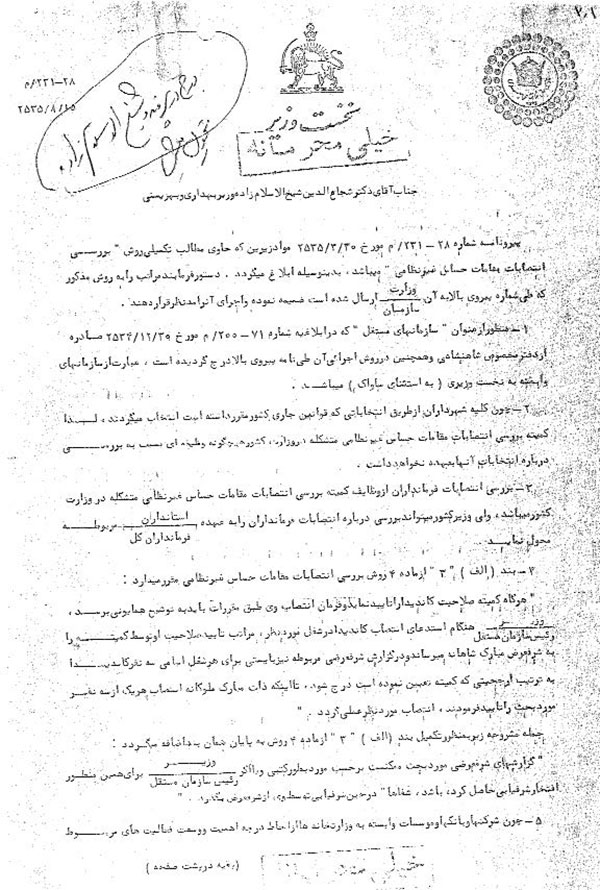 ۷،۱
۲۸-۲۳۱/م
۲۵۳۵/۸/۱۵
نخست وزیر
خیلی محرمانه
جناب آقای دکتر شجاع الدین شیخ الاسلام زاده وزیر بهداری و بهزیستی
پیرو نامه شماره ۲۸ - ۲۳۱/م مورخ ۲۵۳۵/۳/۳۰ مواد زیرین که حاوی مطالب تکمیلی روش " بررسی
انتصابات مقامات حساس غیرنظامی " میباشد ، بدینوسیله ابلاغ میگردد . دستور فرمایند مراتب را به روش مذکور
که طی شماره پیروی بالا به آن وزارت
سازمان ارسال شده است ضمیمه نموده و اجرای آنرا مدنظر قرار دهند .
۱ - منظور از عنوان " سازمانهای مستقل " که در ابلاغیه شماره ۷۱ - ۲۰۰/م مورخ ۲۵۳۴/۱۲/۳۹ صادره
از دفتر مخصوص شاهنشاهی و همچنین در روش اجرائی آن طی نامه پیروی بالا درج گردیده است ، عبارت از سازمانهای
وابسته به نخست وزیری ( به استثنای ساواک ) میباشد .
۲ - چون کلیه شهرداران از طریق انتخاباتی که قوانین جاری کشور مقرر داشته است انتخاب میگردند ، لذا
کمیته بررسی انتصابات مقامات حساس غیرنظامی متشکله در وزارت کشور هیچگونه وظیفه ای نسبت به بررسی
درباره انتخابات آنها بعهده نخواهد داشت .
۳ - بررسی انتصابات فرمانداران از وظایف کمیته بررسی انتصابات مقامات حساس غیرنظامی متشکله در وزارت
کشور میباشد ، ولی وزیر کشور میتواند بررسی درباره انتصابات فرمانداران را به عهده استانداران
فرمانداران کل مربوطه
محول نماید .
۴ - بند ( الف ) " ۳ " از ماده ۴ روش بررسی انتصابات مقامات حساس غیرنظامی مقرر میدارد :
" هرگاه کمیته صلاحیت کاندیدا را تایید نماید و فرمان انتصاب وی طبق مقررات باید به توشیح همایونی برسد ،
وزیر
رئیس سازمان مستقل هنگام استدعای انتصاب کاندیدا در شغل مورد نظر ، مراتب تایید صلاحیت او توسط کمیته را
به شرفعرض مبارک شاهانه میرساند و در گزارش شرفعرضی مربوطه نیز بایستی برای هر شغل اسامی سه نفر کاندیدا
به ترتیب ارجحیتی که کمیته تعیین نموده است درج شود ، تا اینکه ذات مبارک ملوکانه انتصاب هریک از سه نفر
مورد بحث را تایید فرمودند ، انتصاب مورد نظر عملی گردد . "
جمله مشروحه زیر بمنظور تکمیل بند ( الف ) " ۳ " از ماده ۴ روش به پایان همان بند اضافه میگردد :
" گزارشهای شرفعرضی مورد بحث ممکنست برحسب مورد بطور کتبی و یا اگر وزیر
رئیس سازمان مستقل برای همین منظور
افتخار شرفیابی حاصل کرده باشد ، شفاها " در حین شرفیابی توسط وی از شرفعرض بگذرد . "
۵ - چون شرکتها و بانکها و موسسات وابسته به وزارتخانه ها از لحاظ درجه اهمیت و وسعت فعالیت های مربوط
( بقیه در پشت صفحه )
خیلی محرمانه